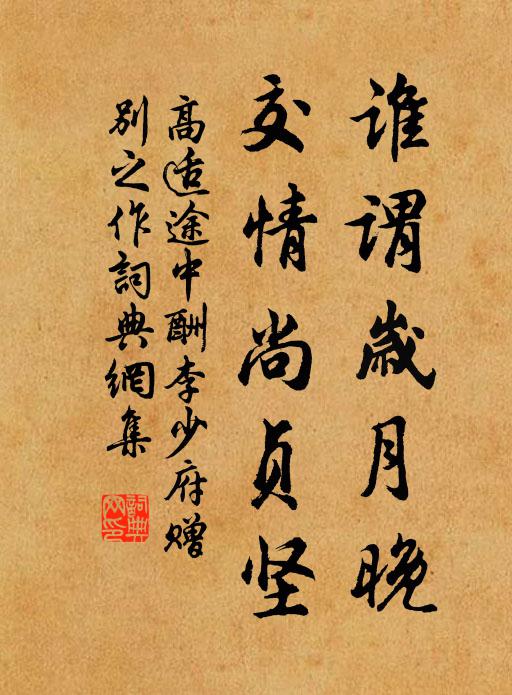 谁谓嵗月晚
交情尚贞坚
高适途中酬李少府赠
别之作詞典網集
詞典網印